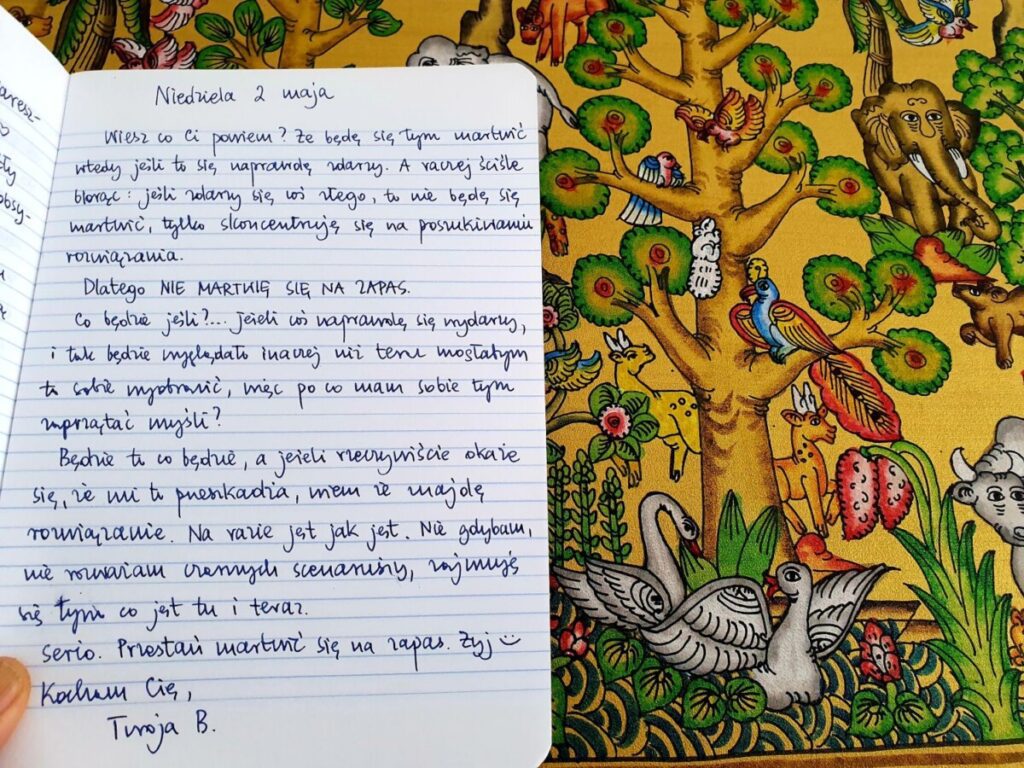 aresz-
ały
obsy-
Niedziela 2 maja
Wiesz co Ci powiem? Że będę się tym martwić
wtedy jeśli to się naprawdę zdarzy. A raczej ściśle
biorąc: jeśli zdarzy się coś złego, to nie będę się
martwić, tylko skoncentruję się na poszukiwaniu
rozwiązania.
Dlatego NIE MARTWIĘ SIĘ NA ZAPAS.
Co będzie jeśli?... jeżeli coś naprawdę się wydarzy,
i tak będzie wyglądało inaczej niż teraz mogłabym
to sobie wyobrazić, więc po co mam sobie tym
zaprzątać myśli?
Będzie to co będzie, a jeżeli rzeczywiście okaże
się, że mi to przeszkadza, wiem że znajdę
rozwiązanie. Na razie jest jak jest. Nie gdybam,
nie rozważam czarnych scenariuszy, zajmuję
się tym co jest tu i teraz.
Serio. Przestań martwić się na zapas. Żyj
Kocham Cię,
Twoja B.